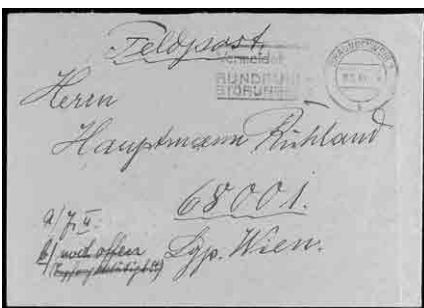 Feldpost.
vermeidet
RUNDFUNK
STÖRUNGEN
Herrn
Hauptmann Rühland
68001.
Lgp. Wien.
a/ J. u.
b/ noch offen